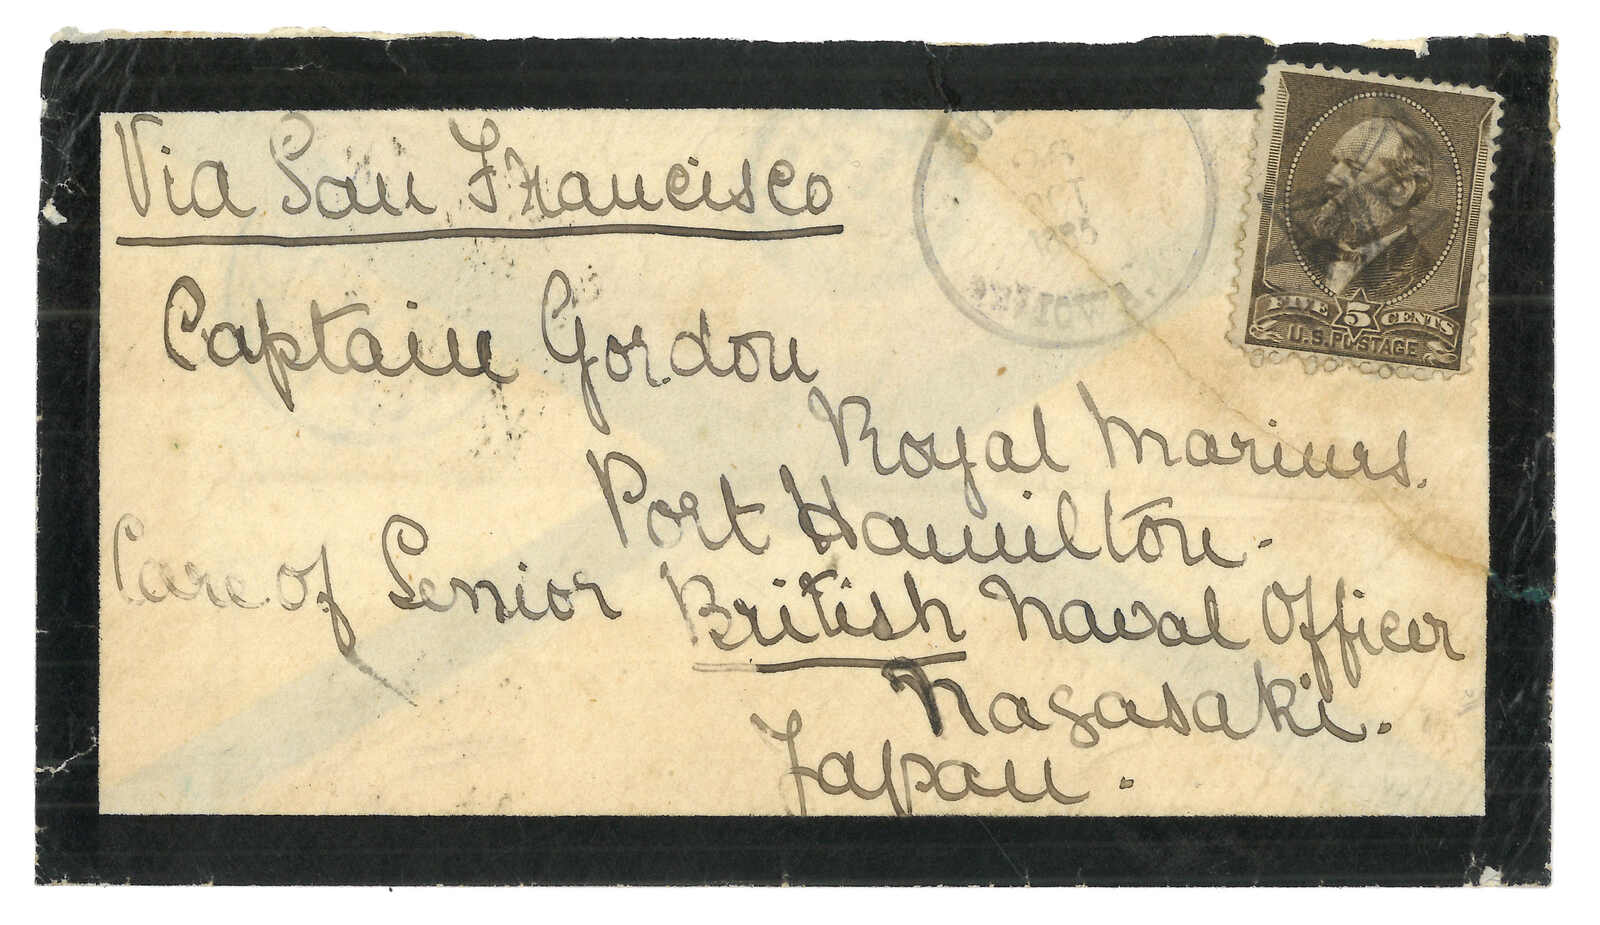 Via San Francisco
Captain Gordon
Royal Marines.
Port Hamilton.
Care of Senior British Naval Officer
Nagasaki.
Japan.
IOWA.
FIVE 5 CENTS
U.S. POSTAGE